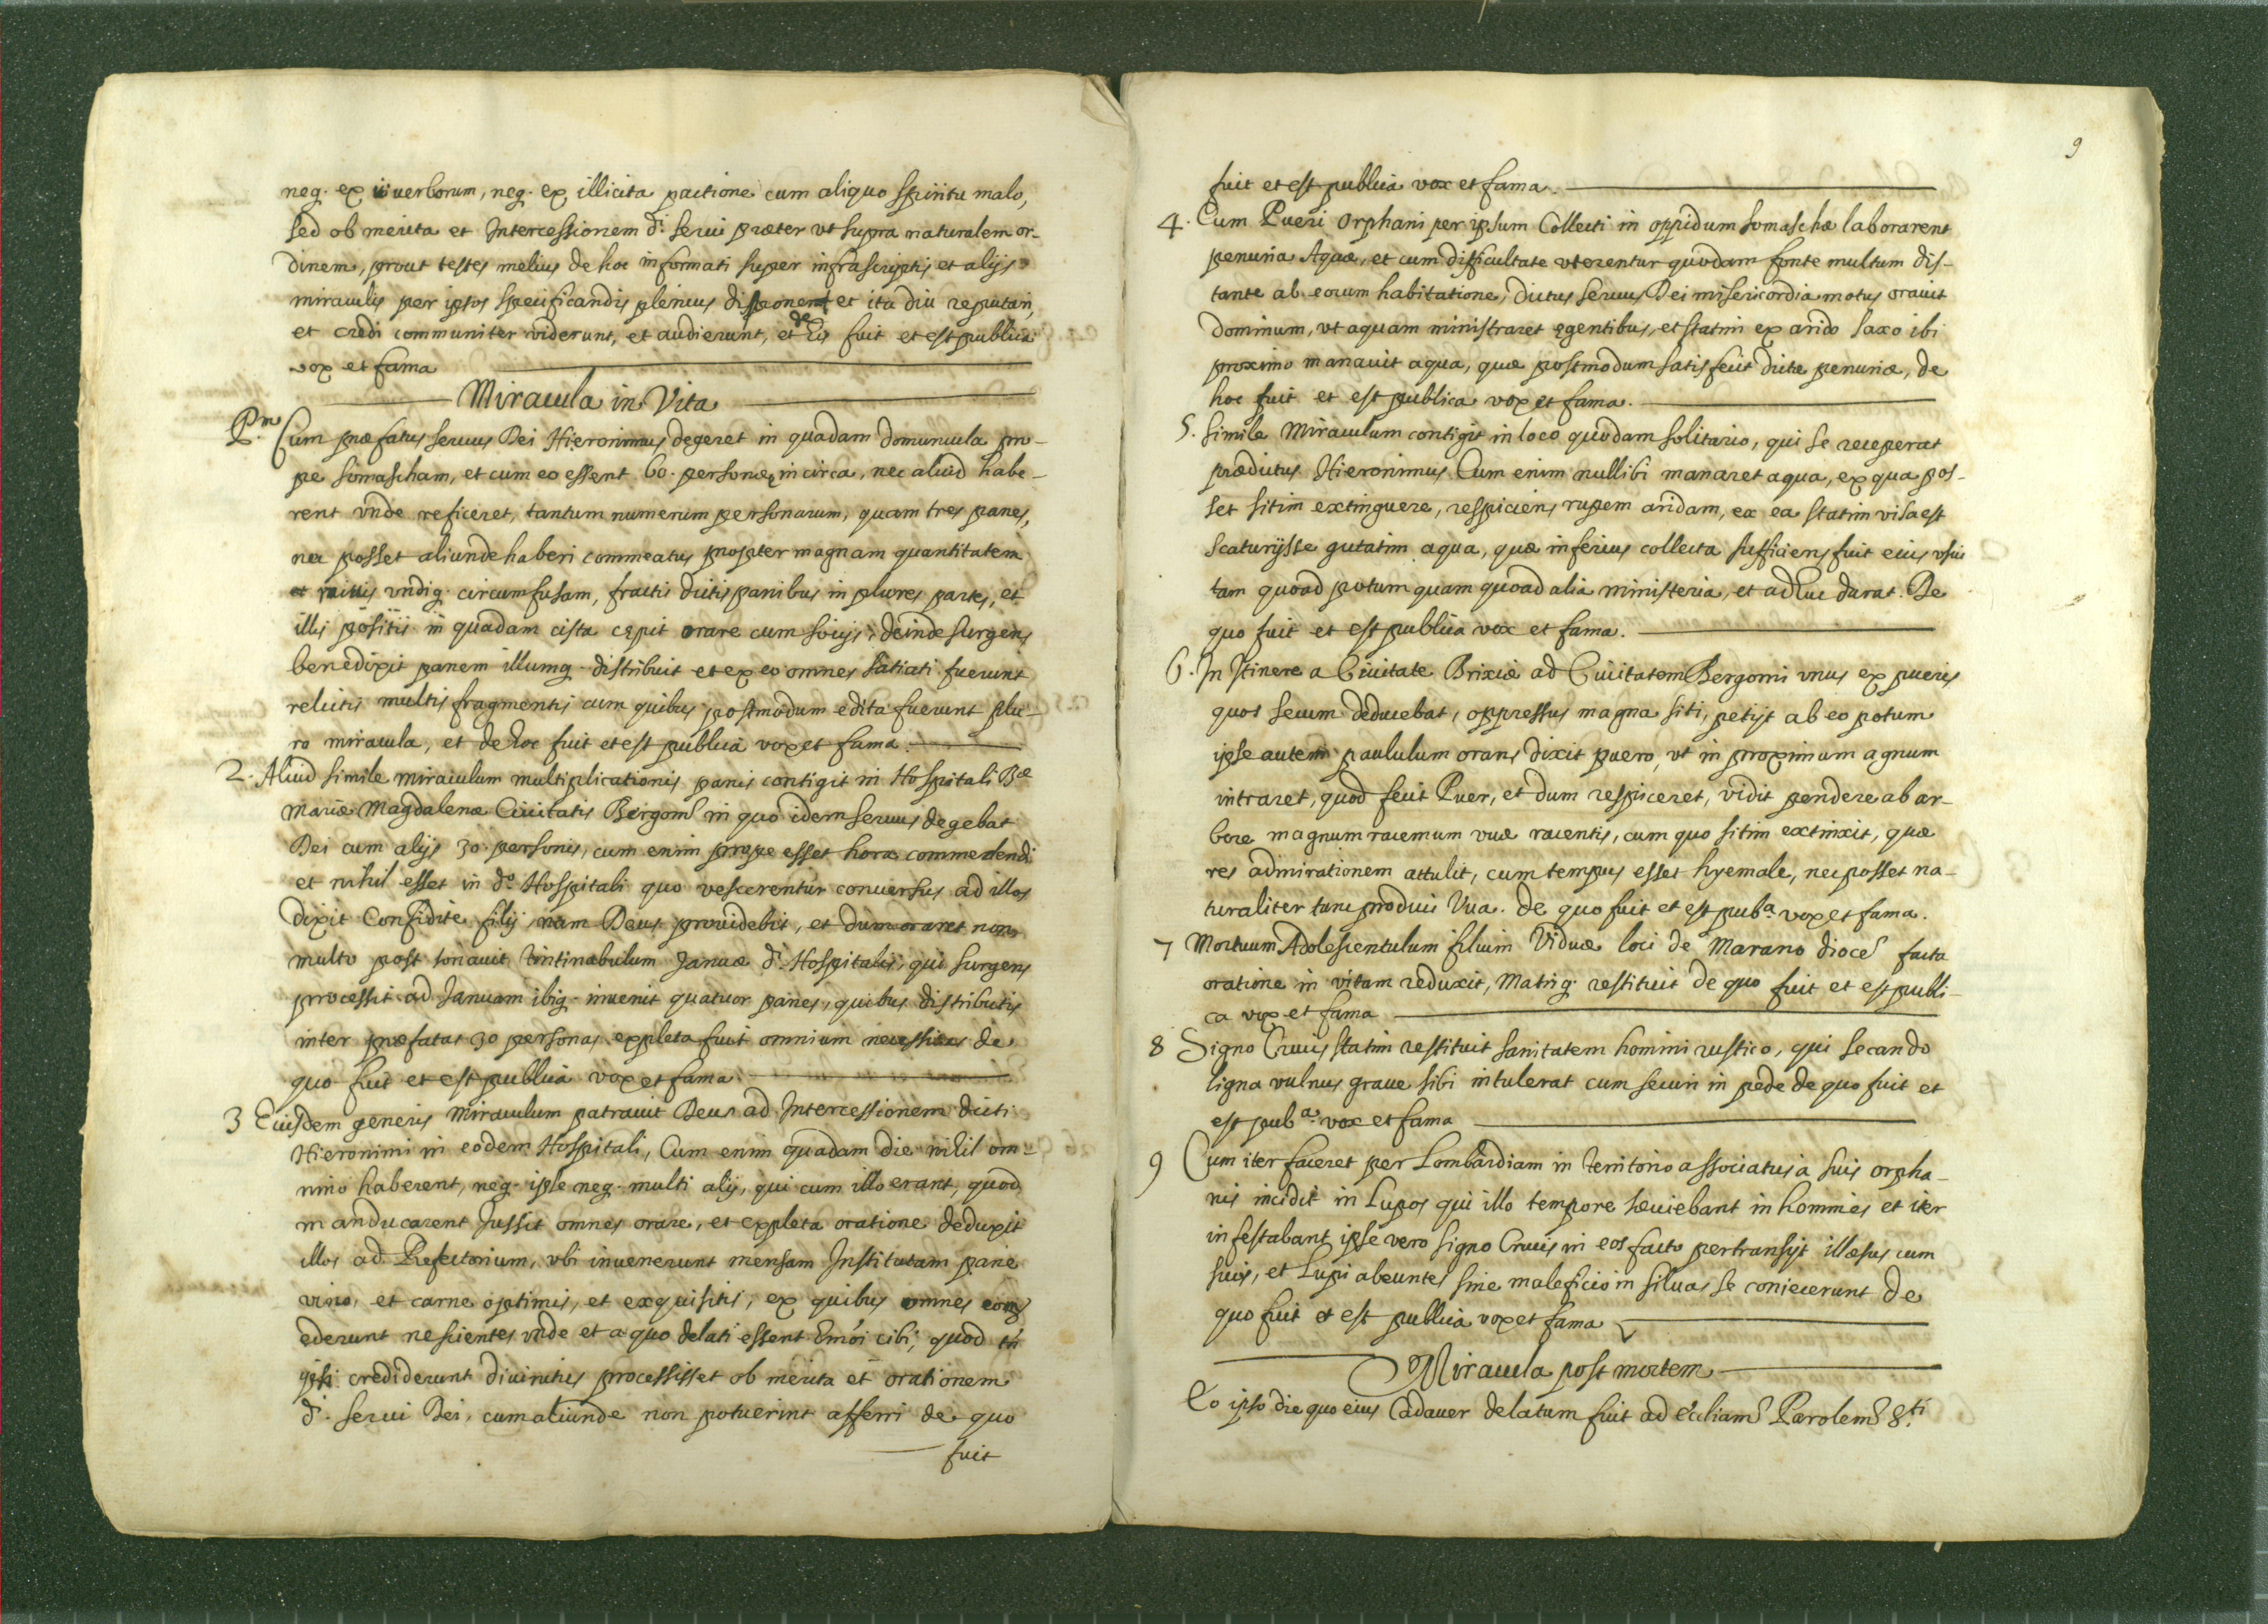 neq. ex ui uerborum, neq. ex illicita pactione cum aliquo Spiritu malo,
sed ob merita et Intercessionem d.i serui præter ut supra naturalem or-
dinem, prout testes melius de hoc informati super infrascriptis et alijs
miraculis per ipsos specificandis plenius disponent et ita diu reputari,
et credi communiter viderunt, et audierunt, et de Eis fuit et est publica
vox et fama
Miracula in Vita
P.m Cum præfatus seruus Dei Hieronimus degeret in quadam domuncula pro-
pe somascham, et cum eo essent 60. personæ in circa, nec aliud habe-
rent vnde reficeret, tantum numerum personarum, quam tres panes,
nec posset aliunde haberi commeatus propter magnam quantitatem
niuis vndiq. circumfusam, fractis dictis panibus in plures partes, et
illis positis in quadam cista cępit orare cum socijs, deinde surgens
benedixit panem illumq. distribuit et ex eo omnes satiati fuerunt
relictis multis fragmentis cum quibus postmodum edita fuerunt plu-
ra miracula, et de hoc fuit et est publica vox et fama.
2. Aliud simile miraculum multiplicationis panis contigit in Hospitali Bæ
Mariæ Magdalenæ Ciuitatis Bergomi in quo idem seruus degebat
Dei cum alijs 30. personis, cum enim prope esset hora commedendi
et nihil esset in d.o Hospitali quo vescerentur conuersus ad illos
dixit Confidite filij, nam Deus prouidebit, et dum oraret non
multo post sonauit tintinabulum Januæ d.i Hospitalis, qui surgens
processit ad Januam ibiq. inuenit quatuor panes, quibus distributis
inter præfatas 30 personas expleta fuit omnium necessitas de
quo fuit et est publica vox et fama
3 Eiusdem generis miraculum patrauit Deus ad Intercessionem dicti
Hieronimi in eodem Hospitali, Cum enim quadam die nihil om-
nino haberent, neq. ipse neq. multi alij, qui cum illo erant, quod
manducarent Jussit omnes orare, et expleta oratione deduxit
illos ad Refectorium, vbi inuenerunt mensam Institutam pane
vino, et carne optimis, et exquisitis, ex quibus omnes com
ederunt nescientes vnde et a quo delati essent cibi, quod
ipsi crediderunt diuinitus processisset ob merita et orationem
d.i serui Dei, cum aliunde non potuerint afferri de quo
fuit
9
fuit et est publica vox et fama.
4. Cum Pueri Orphani per ipsum Collecti in oppidum somaschæ laborarent
penuria Aquæ, et cum difficultate vterentur quodam fonte multum dis-
tante ab eorum habitatione, dictus seruus Dei misericordia motus orauit
dominum, vt aquam ministraret egentibus, et statim ex arido saxo ibi
proximo manauit aqua, quæ postmodum satisfecit dictæ penuriæ, de
hoc fuit et est publica vox et fama.
5. Simile Miraculum contigit in loco quodam solitario, qui se receperat
prædictus Hieronimus Cum enim nullibi manaret aqua, ex qua pos-
set sitim extinguere, respiciens rupem aridam, ex ea statim visa est
scaturijsse gutatim aqua, quæ inferius collecta sufficiens fuit eius vsui
tam quoad potum quam quoad alia ministeria, et adhuc durat. De
quo fuit et est publica vox et fama.
6. In Itinere a Ciuitate Brixiæ ad Ciuitatem Bergomi vnus ex pueris
quos secum deducebat, oppressus magna siti, petijt ab eo potum
ipse autem paululum orans dixit puero, vt in proximum agrum
intraret, quod fecit Puer, et dum respiceret, vidit pendere ab ar-
bore magnum racemum vuæ racentis, cum quo sitim extinxit, quæ
res admirationem attulit, cum tempus esset hyemale, nec posset na-
turaliter tunc produci Vua. de quo fuit et est pub.a vox et fama.
7 Mortuum Adolescentulum filium Viduæ loci de Marano dioces facta
oratione in vitam reduxit, Matriq. restituit de quo fuit et est publi-
ca vox et fama
8 Signo Crucis statim restituit sanitatem homini rustico, qui secando
ligna vulnus graue sibi intulerat cum securi in pede de quo fuit et
est pub.a vox et fama
9 Cum iter faceret per Lombardiam in territorio associatus à suis orpha-
nis incidit in Lupos qui illo tempore sæuiebant in homines et iter
infestabant ipse vero signo Crucis in eos facto pertransijt illæsus cum
suis, et Lupi abeuntes sine maleficio in siluas se coniecerunt de
quo fuit et est publica vox et fama
Miracula post mortem
Eo ipso die quo eius Cadauer delatum fuit ad eccliam Parolem S.ti